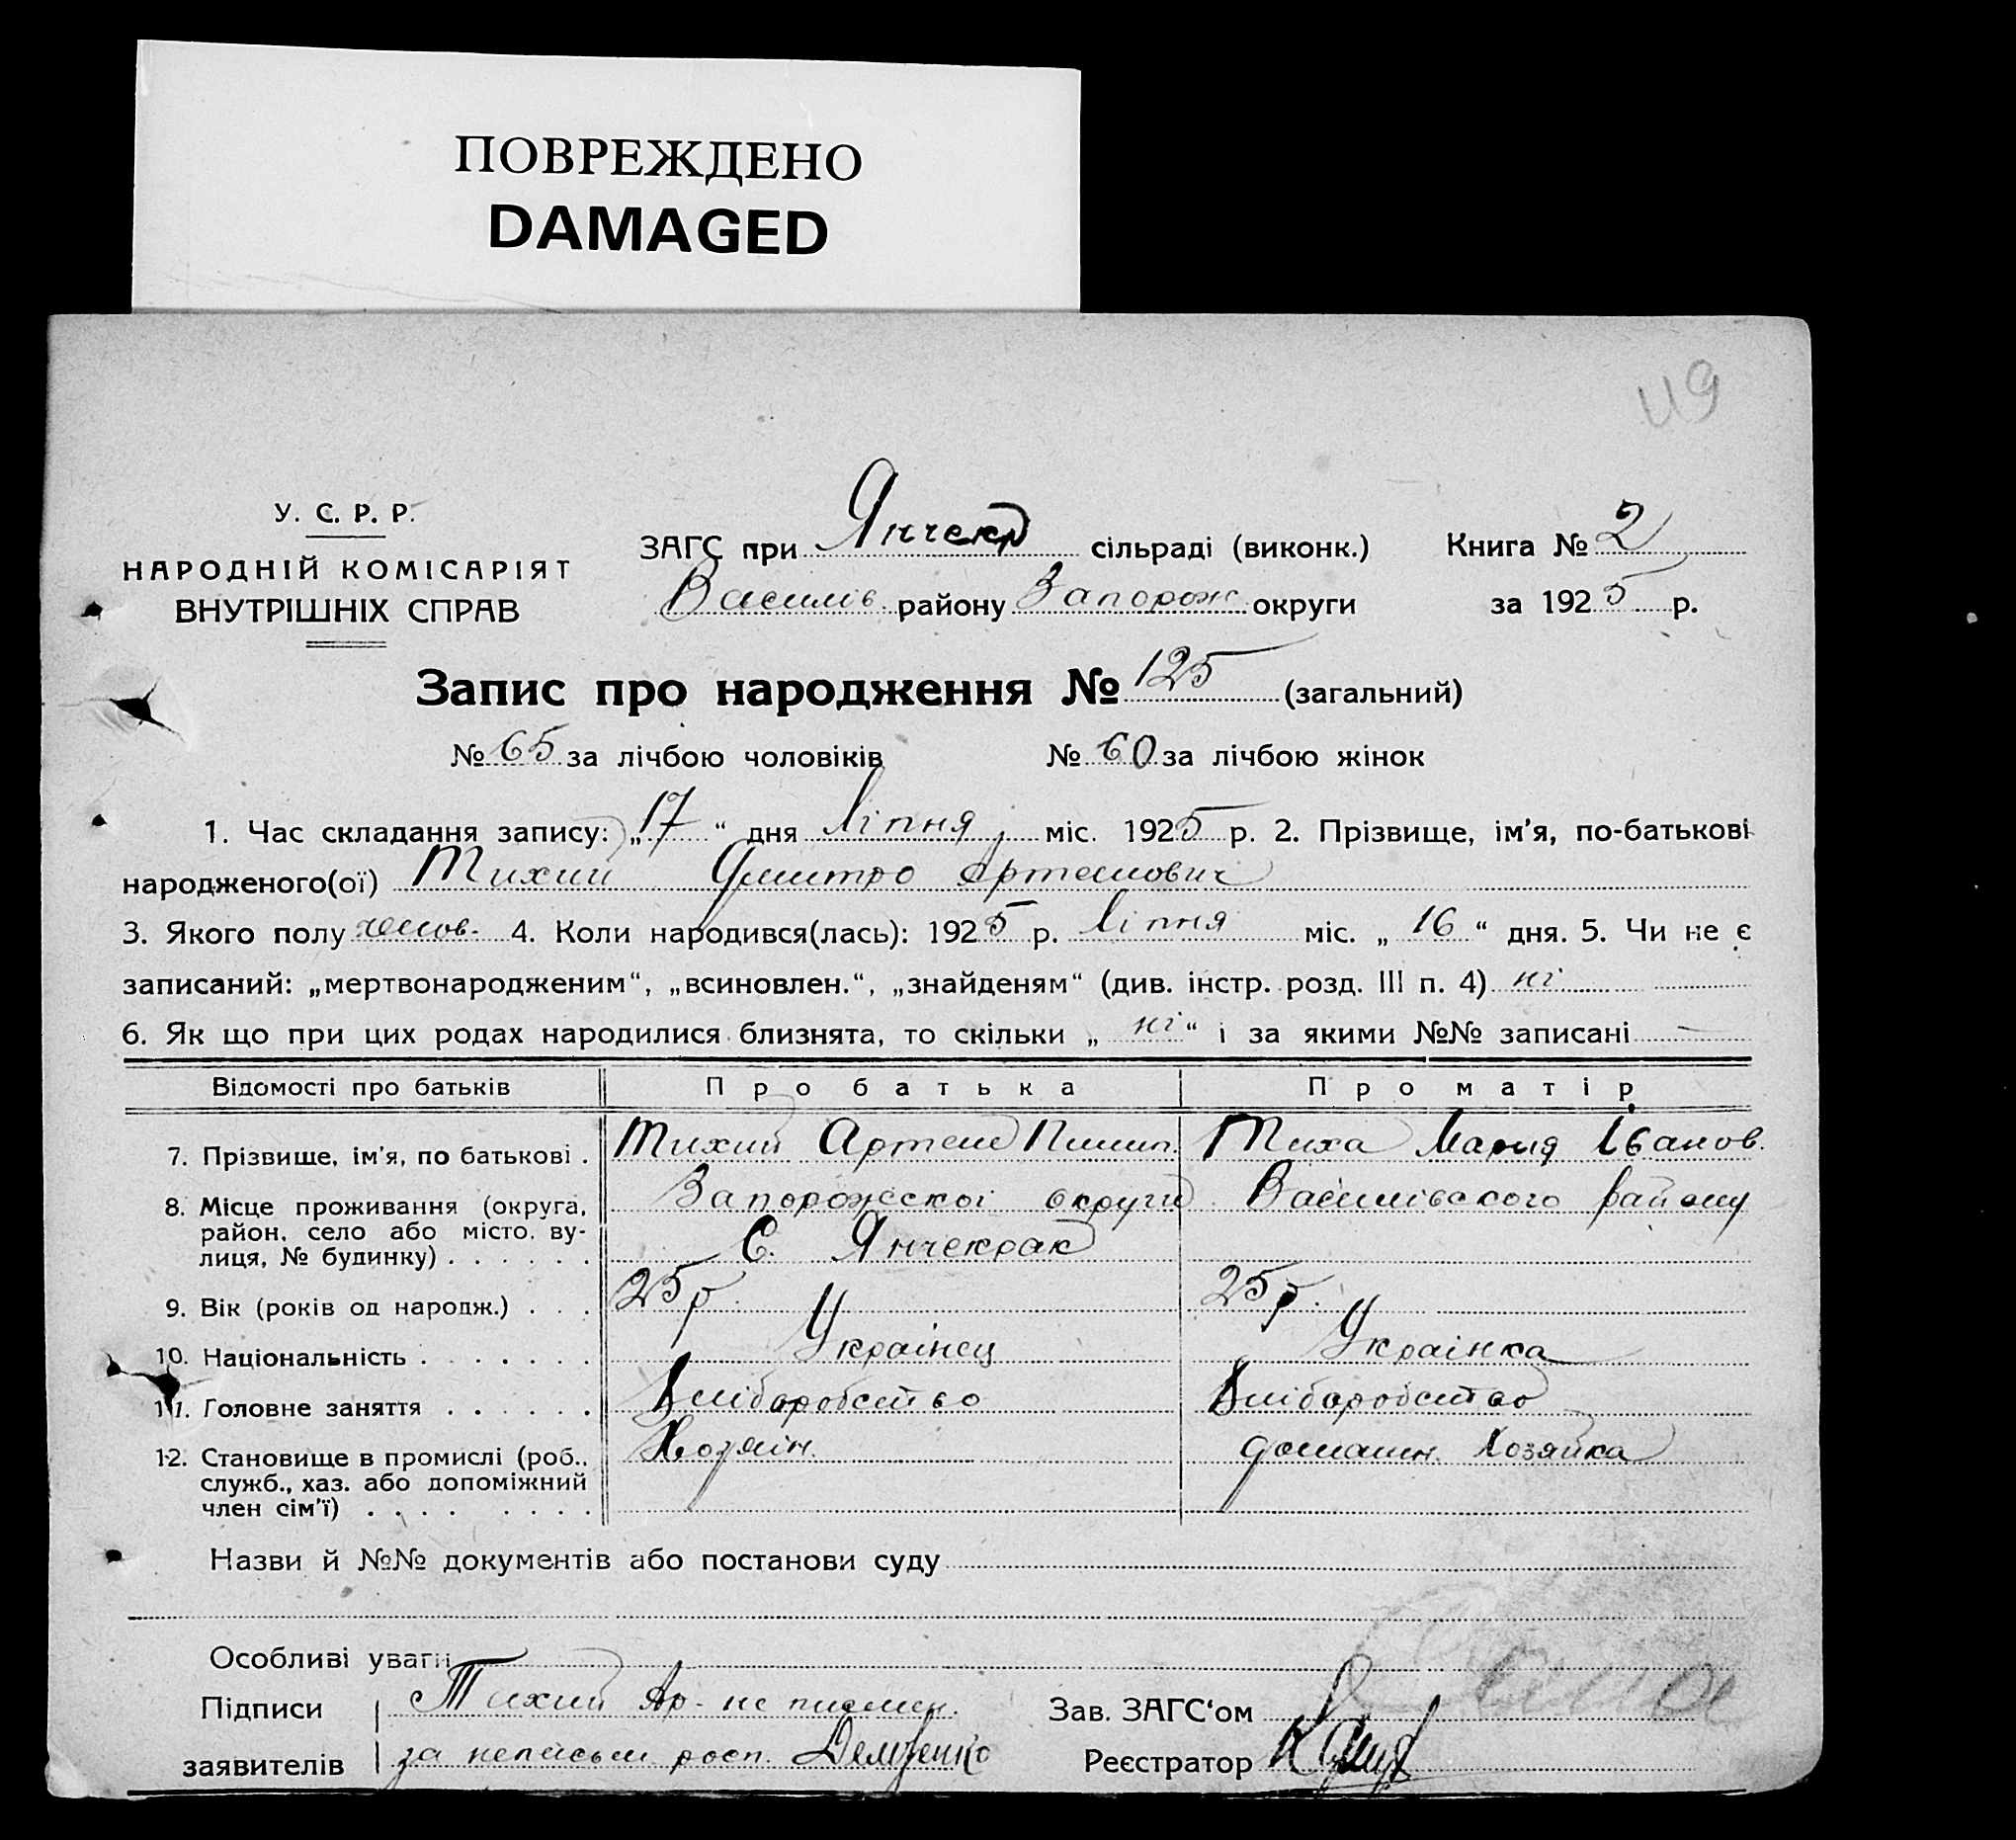 ПОВРЕЖДЕНО
DAMAGED
У. С. Р. Р.
НАРОДНІЙ КОМІСАРІЯТ
ВНУТРІШНІХ СПРАВ
ЗАГС при Янчекр сільраді (виконк.) Книга № 2
Василів. району Запорож. округи за 1925 р.
Запис про народження № 125 (загальний)
№ 65 за лічбою чоловіків № 60 за лічбою жінок
1. Час складання запису: „17“ дня Ліпня міс. 1925 р. 2. Прізвище, ім'я, по-батькові
народженого(ої) Тихий Дмитро Артемович
3. Якого полу чолов. 4. Коли народився(лась): 1925 р. Ліпня міс. „16“ дня. 5. Чи не є
записаний: „мертвонародженим“, „всиновлен.“, „знайденям“ (див. інстр. розд. III п. 4) ні
6. Як що при цих родах народилися близнята, то скільки „ні“ і за якими №№ записані —
Відомості про батьків Про батька Про матір
7. Прізвище, ім'я, по батькові . Тихий Артем Пилип. Тиха Мария Іванов.
8. Місце проживання (округа, Запорожскоі округи Василівского району
район, село або місто, ву-
лиця, № будинку) . . . . . . С. Янчекрак
9. Вік (років од народж.) . . . 25 р. 25 р.
10. Національність . . . . . . . Украінец Украінка
11. Головне заняття . . . . . . Хліборобство Хліборобство
12. Становище в промислі (роб., Хозяін. домашн. Хозяйка
служб., хаз. або допоміжний
член сім'ї) . . . . . . . .
Назви й №№ документів або постанови суду
Особливі уваги
Підписи Тихий Ар- не писмен. Зав. ЗАГС‘ом
заявителів за неписьм росп. Демченко Реєстратор